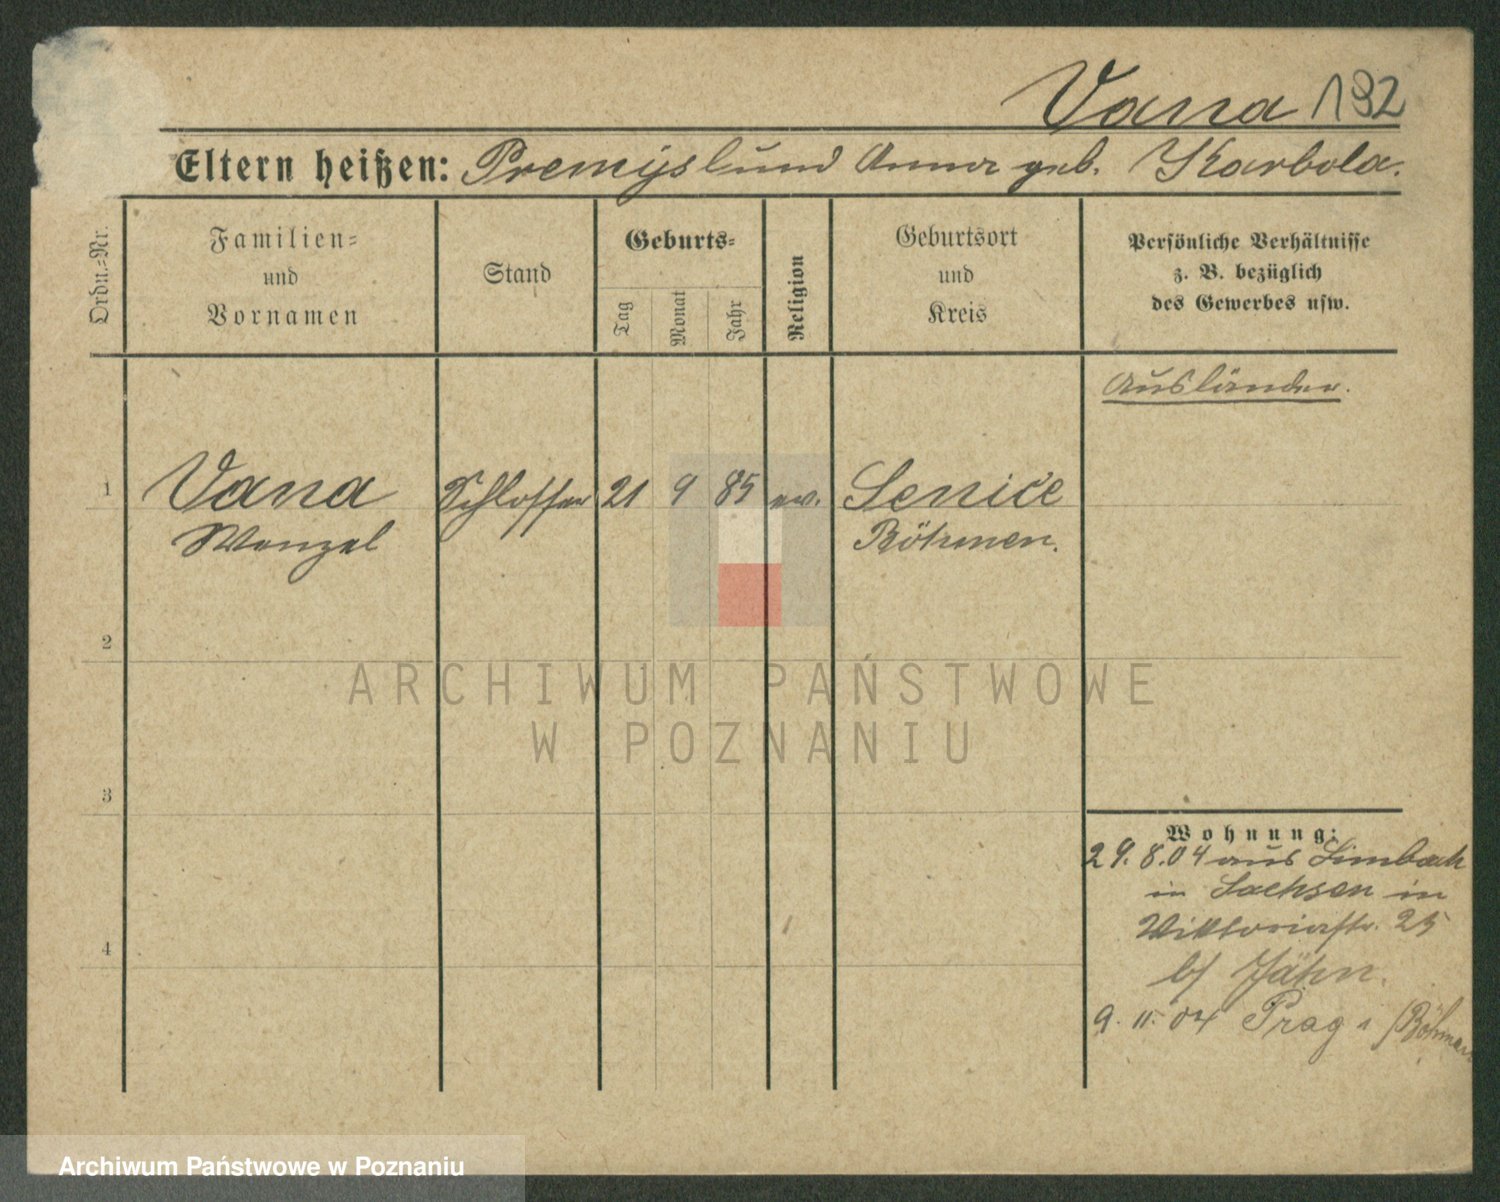 Vana 132
Eltern heißen: Premysl und Anna geb. Karbola.
Ordn.=Nr.
Familien=
und
Vornamen
Stand
Geburts=
Tag
Monat
Jahr
Religion
Geburtsort
und
Kreis
Persönliche Verhältnisse
z. B. bezüglich
des Gewerbes usw.
Ausländer.
1 Vana Schlosser 21 9 85 ev. Seniće
Wenzel Böhmen.
2
3
4
Wohnung:
29. 8. 04 aus Limbach
in Sachsen in
Viktoriastr. 25
b/ Jähn.
9. 11. 04 Prag /Böhmen
ARCHIWUM PAŃSTWOWE
W POZNANIU
Archiwum Państwowe w Poznaniu